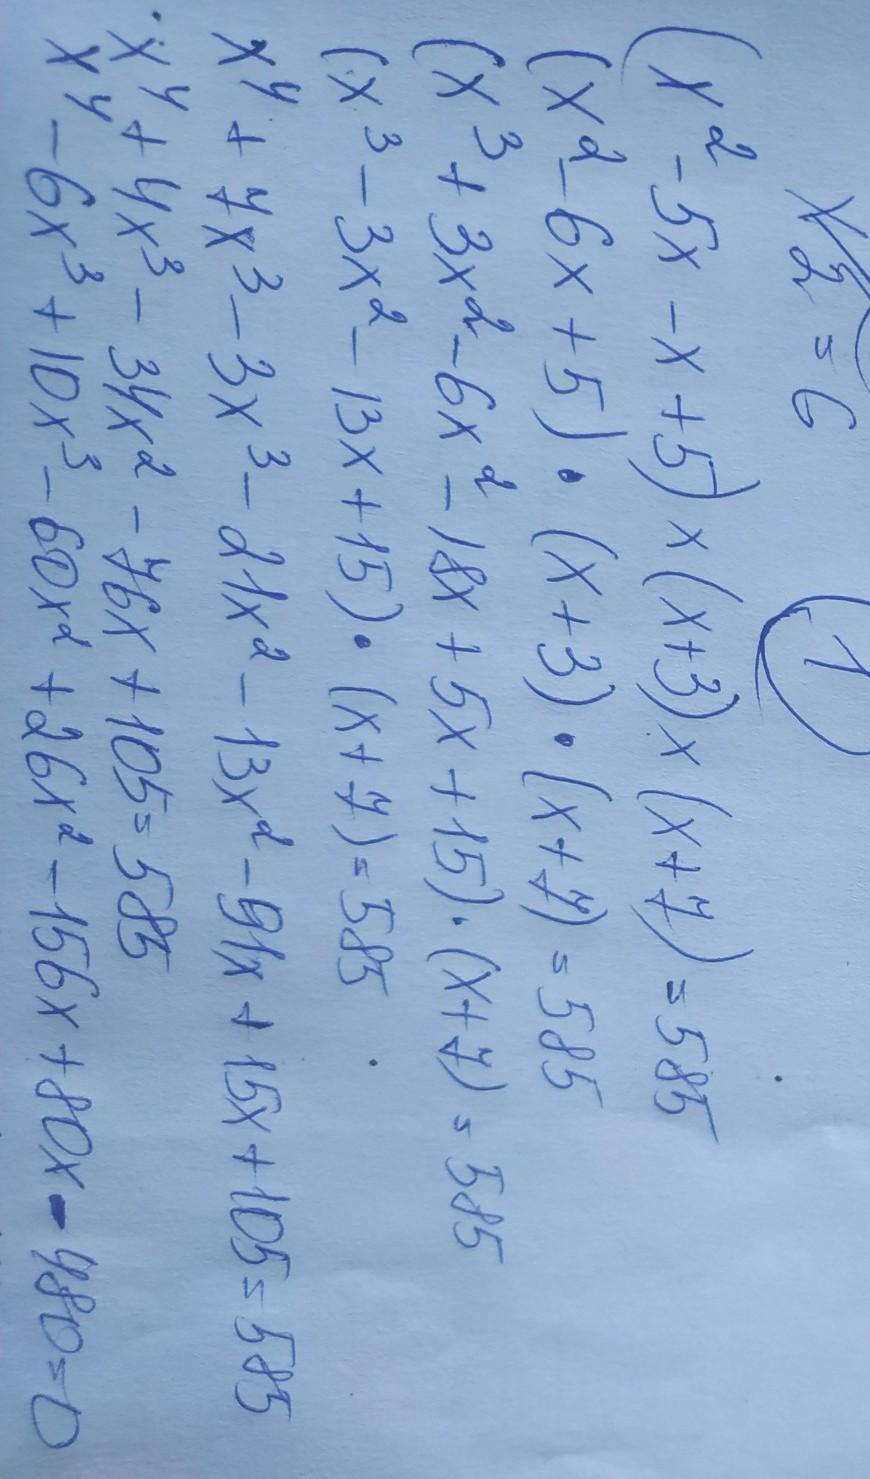 x₂ = 6
1
(x² - 5x - x + 5) × (x+3) × (x+7) = 585
(x² - 6x + 5) · (x+3) · (x+7) = 585
(x³ + 3x² - 6x² - 18x + 5x + 15) · (x+7) = 585
(x³ - 3x² - 13x + 15) · (x+7) = 585
x⁴ + 7x³ - 3x³ - 21x² - 13x² - 91x + 15x + 105 = 585
x⁴ + 4x³ - 34x² - 76x + 105 = 585
x⁴ - 6x³ + 10x³ - 60x² + 26x² - 156x + 80x - 480 = 0